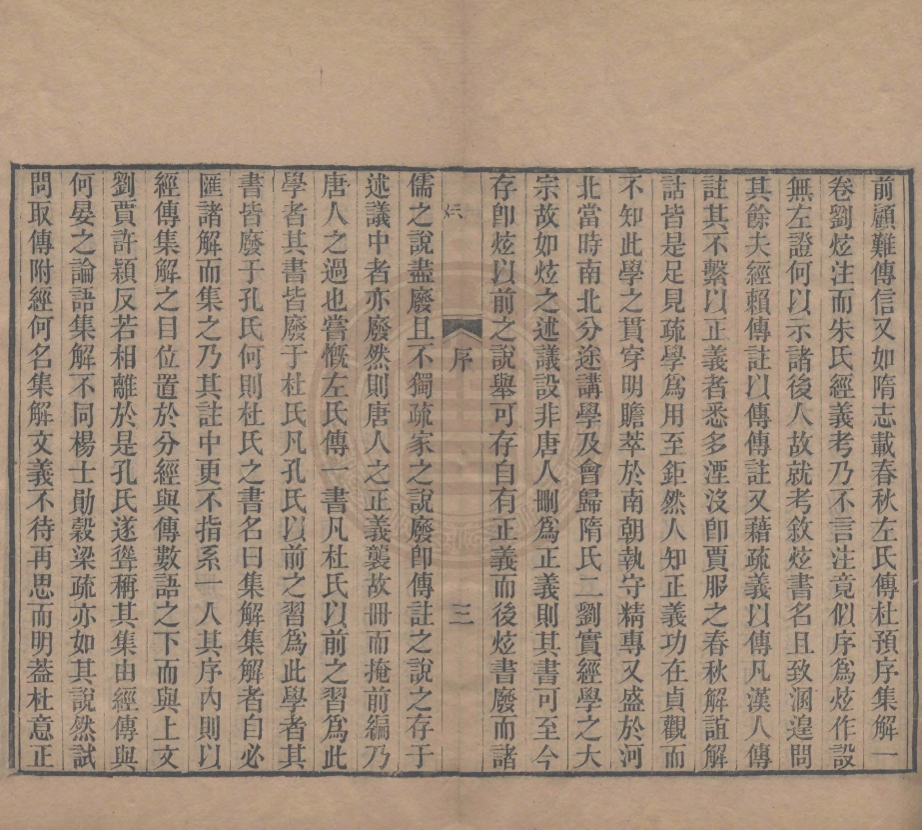 前顧難傳信又如隋志載春秋左氏傳杜預序集解一
卷劉炫注而朱氏經義考乃不言注竟似序爲炫作設
無左證何以示諸後人故就考敘炫書名且致溷遑問
其餘夫經賴傳註以傳傳註又藉疏義以傳凡漢人傳
註其不繫以正義者悉多湮沒卽賈服之春秋解誼解
詁皆是足見疏學爲用至鉅然人知正義功在貞觀而
不知此學之貫穿明贍萃於南朝執守精專又盛於河
北當時南北分途講學及會歸隋氏二劉實經學之大
宗故如炫之述議設非唐人刪爲正義則其書可至今
存卽炫以前之說舉可存自有正義而後炫書廢而諸
序
三
儒之說盡廢且不獨疏家之說廢卽傳註之說之存于
述議中者亦廢然則唐人之正義襲故冊而掩前編乃
唐人之過也嘗慨左氏傳一書凡杜氏以前之習爲此
學者其書皆廢于杜氏凡孔氏以前之習爲此學者其
書皆廢于孔氏何則杜氏之書名曰集解集解者自必
匯諸解而集之乃其註中更不指系一人其序內則以
經傳集解之目位置於分經與傳數語之下而與上文
劉賈許穎反若相離於是孔氏遂聳稱其集由經傳與
何晏之論語集解不同楊士勛穀梁疏亦如其說然試
問取傳附經何名集解文義不待再思而明葢杜意正